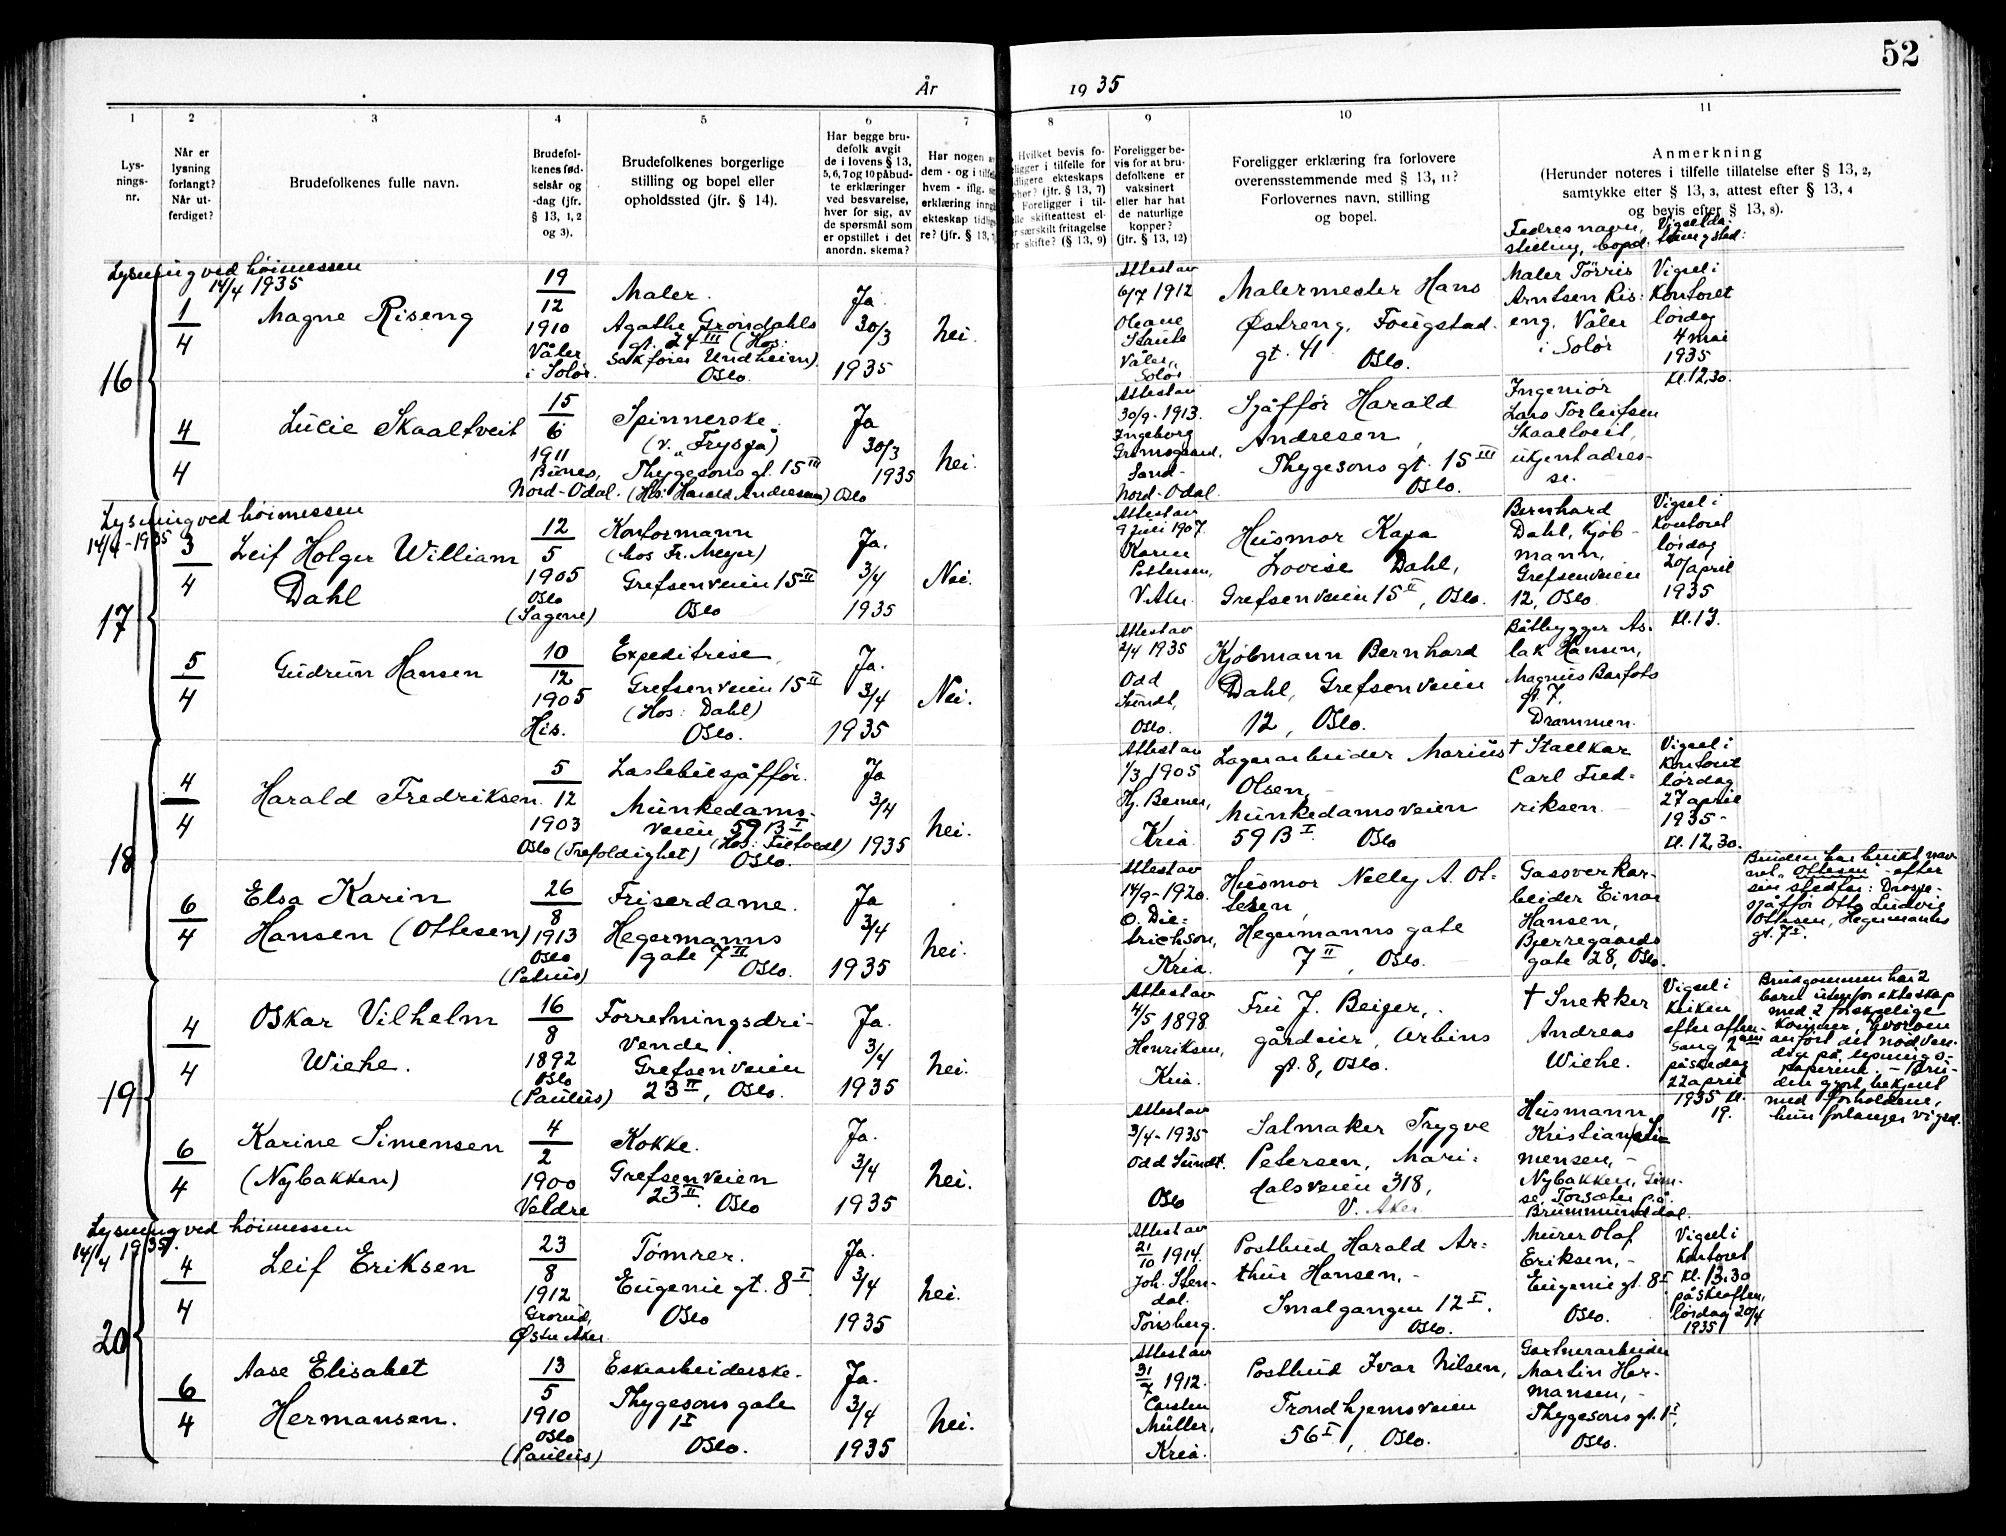 52
År 1935
1 2 3 4 5 6 7 8 9 10 11
Lys-
nings-
nr.
Når er
lysning
forlangt?
Når ut-
ferdiget?
Brudefolkenes fulle navn.
Brudefol-
kenes fød-
selsår og
-dag (jfr.
§ 13, 1, 2
og 3).
Brudefolkenes borgerlige
stilling og bopel eller
opholdssted (jfr. § 14).
Har begge bru-
defolk avgit
de i lovens § 13,
5, 6, 7 og 10 påbud-
te erklæringer
ved besvarelse,
hver for sig, av
de spørsmål som
er opstillet i det
anordn. skema?
Har nogen av
dem - og i tilfelle
hvem - iflg. sin
erklæring inngått
ekteskap tidlige-
re? (jfr. § 13,
Hvilket bevis fo-
religger i tilfelle for
tidligere ekteskaps
ophør? (jfr. § 13, 7)
Foreligger i til-
felle skifteattest el-
ler særskilt fritagelse
for skifte? (§ 13, 9)
Foreligger be-
vis for at bru-
defolkene er
vaksinert
eller har hat
de naturlige
kopper?
(jfr. § 13, 12)
Foreligger erklæring fra forlovere
overensstemmende med § 13, 11?
Forlovernes navn, stilling
og bopel.
Anmerkning
(Herunder noteres i tilfelle tillatelse efter § 13, 2,
samtykke efter § 13, 3, attest efter § 13, 4
og bevis efter § 13, 8).
Fedres navn,
stilling, bopel.
Lysning ved høimessen
14/4 1935
16
1/4
Magne Riseng
19/12
1910
Våler
i Solør.
Maler.
Agathe Grøndahls
gt. 24 III (Hos:
Sakfører Undheim).
Oslo.
Ja
30/3
1935
Nei.
Attest av
6/7 1912
Oleane
Våler,
Solør
Malermester Hans
Østreng, Fougstad-
gt. 41. Oslo.
Maler Tørris
Arntsen Ris-
eng, Våler
i Solør
Vigsel i
Kontoret
lørdag
4 mai
1935
kl. 12,30.
4/4
Lucie Skaaltveit
15/6
1911
Nord-Odal.
Spinnerske
(v. "Frysja")
Thygesons gt. 15 III
(Hos: Harald Andresen) Oslo
Ja
30/3
1935
Nei.
Attest av
30/9-1913.
Ingeborg
Sand-
Nord-Odal.
Sjåffør Harald
Andresen,
Thygesons gt. 15 III
Oslo.
Ingeniør
Lars Torleifsen
Skaaltveit,
ukjent adres-
se.
Lysning ved høimessen
14/4-1935
17
3/4
Leif Holger William
Dahl
12/5
1905
Oslo
(Sagene)
Kontormann
(hos Fr. Meyer)
Grefsenveien 15 II
Oslo
Ja.
3/4
1935
Nei.
Attest av
9 juli 1907.
Karen
Pettersen,
V. Aker.
Husmor Kaja
Lovise Dahl,
Grefsenveien 15 II, Oslo.
Bernhard
Dahl, Kjøb-
mann,
Grefsenveien
12, Oslo.
Vigsel i
Kontoret
lørdag
20/april
1935
kl. 13.
5/4
Gudrun Hansen
10/12
1905
His.
Expeditrise,
Grefsenveien 15 II
(Hos: Dahl)
Oslo.
Ja.
3/4
1935
Nei.
Attest av
2/4 1935
Odd
Sundt,
Oslo.
Kjøbmann Bernhard
Dahl, Grefsenveien
12, Oslo.
Båtbygger As-
lak Hansen,
Magnus Barfots
gt. 7.
Drammen.
18
4/4
Harald Fredriksen
5/12
1903
Oslo (Trefoldighet)
Lastebilsjåffør.
Munkedams-
veien 59 B I
Oslo.
Ja
3/4
1935
Nei.
Attest av
1/3 1905
Hj. Berner,
Kria.
Lagerarbeider Marius
Olsen,
Munkedamsveien
59 B I Oslo
† Stallkar
Carl Fred-
riksen.
Vigsel i
Kontoret
lørdag
27 april
1935-
kl. 12,30.
6/4
Elsa Karin
Hansen (Ottesen)
26/8
1913
Oslo
(Petrus)
Friserdame.
Hegermanns
gate 7 II
Oslo.
Ja
3/4
1935
Nei.
Attest av
14/9-1920.
O. Die-
trichson,
Kria.
Husmor Nelly A. Ot-
tesen,
Hegermanns gate
7 II, Oslo.
Gassverkar-
beider Einar
Hansen,
Bjerregaards
gate 28, Oslo.
Bruden har brukt nav-
net "Ottesen" efter
sin stedfar: Drosje-
sjåffør Otto Ludvig
Ottesen, Hegermanns
gt. 7 I.
19
4/4
Oskar Vilhelm
Wiehe.
16/8
1892
Oslo
(Paulus)
Forretningsdri-
vende.
Grefsenveien
23 II, Oslo.
Ja.
3/4
1935
Nei.
Attest av
4/5 1898
Henriksen,
Kria.
Fru J. Beiger,
gårdeier, Arbins
gt. 8, Oslo.
† Snekker
Andreas
Wiehe.
Vigsel i
kirken
efter aften-
sang 2 den
påskedag
22 april
1935 kl.
19.
Brudgommen har 2
barn utenfor ekteskap
med 2 forskjellige
kvinner, hvorom
anført det nødven-
dige på lysnings-
papirene. - Bru-
den gjort bekjent
med forholdene,
hun forlanger vigsel.
6/4
Karine Simensen
(Nybakken)
4/2
1900
Veldre
Kokke.
Grefsenveien
23 II. Oslo
Ja.
3/4
1935
Nei.
Attest av
3/4-1935
Odd Sundt.
Oslo
Salmaker Trygve
Petersen, Mari-
dalsveien 318,
V. Aker
Husmann
Kristian Si-
mensen,
Nybakken,
Brummunddal.
Lysning ved høimessen
14/4 1935.
20
4/4
Leif Eriksen
23/8
1912
Grorud,
Østre Aker.
Tømrer.
Eugenie gt. 8 I
Oslo
Ja.
3/4
1935
Nei.
Attest av
21/10 1914.
Joh. Sten-
dal.
Tønsberg.
Postbud Harald Ar-
thur Hansen,
Smalgangen 12 I.
Oslo.
Murer Olaf
Eriksen,
Eugenie gt. 8 I
Oslo.
Vigsel i
Kontoret
kl. 13,30
påskeaften,
lørdag 20/4
1935
6/4
Aase Elisabet
Hermansen.
13/5
1910
Oslo
(Paulus)
Eskearbeiderske.
Thygesons gate
1 I
Oslo.
Ja.
3/4
1935
Nei.
Attest av
31/7 1912.
Carsten
Müller,
Kria.
Postbud Ivar Nilsen,
Trondhjemsveien
56 I, Oslo.
Gartnerarbeider
Martin Her-
mansen,
Thygesons gt. 1 I,
Oslo.